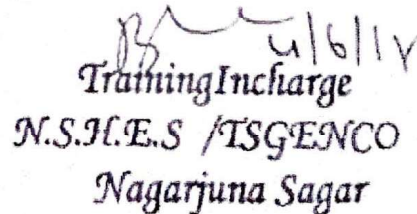 4/6/18
Training Incharge
N.S.H.E.S /TSGENCO
Nagarjuna Sagar